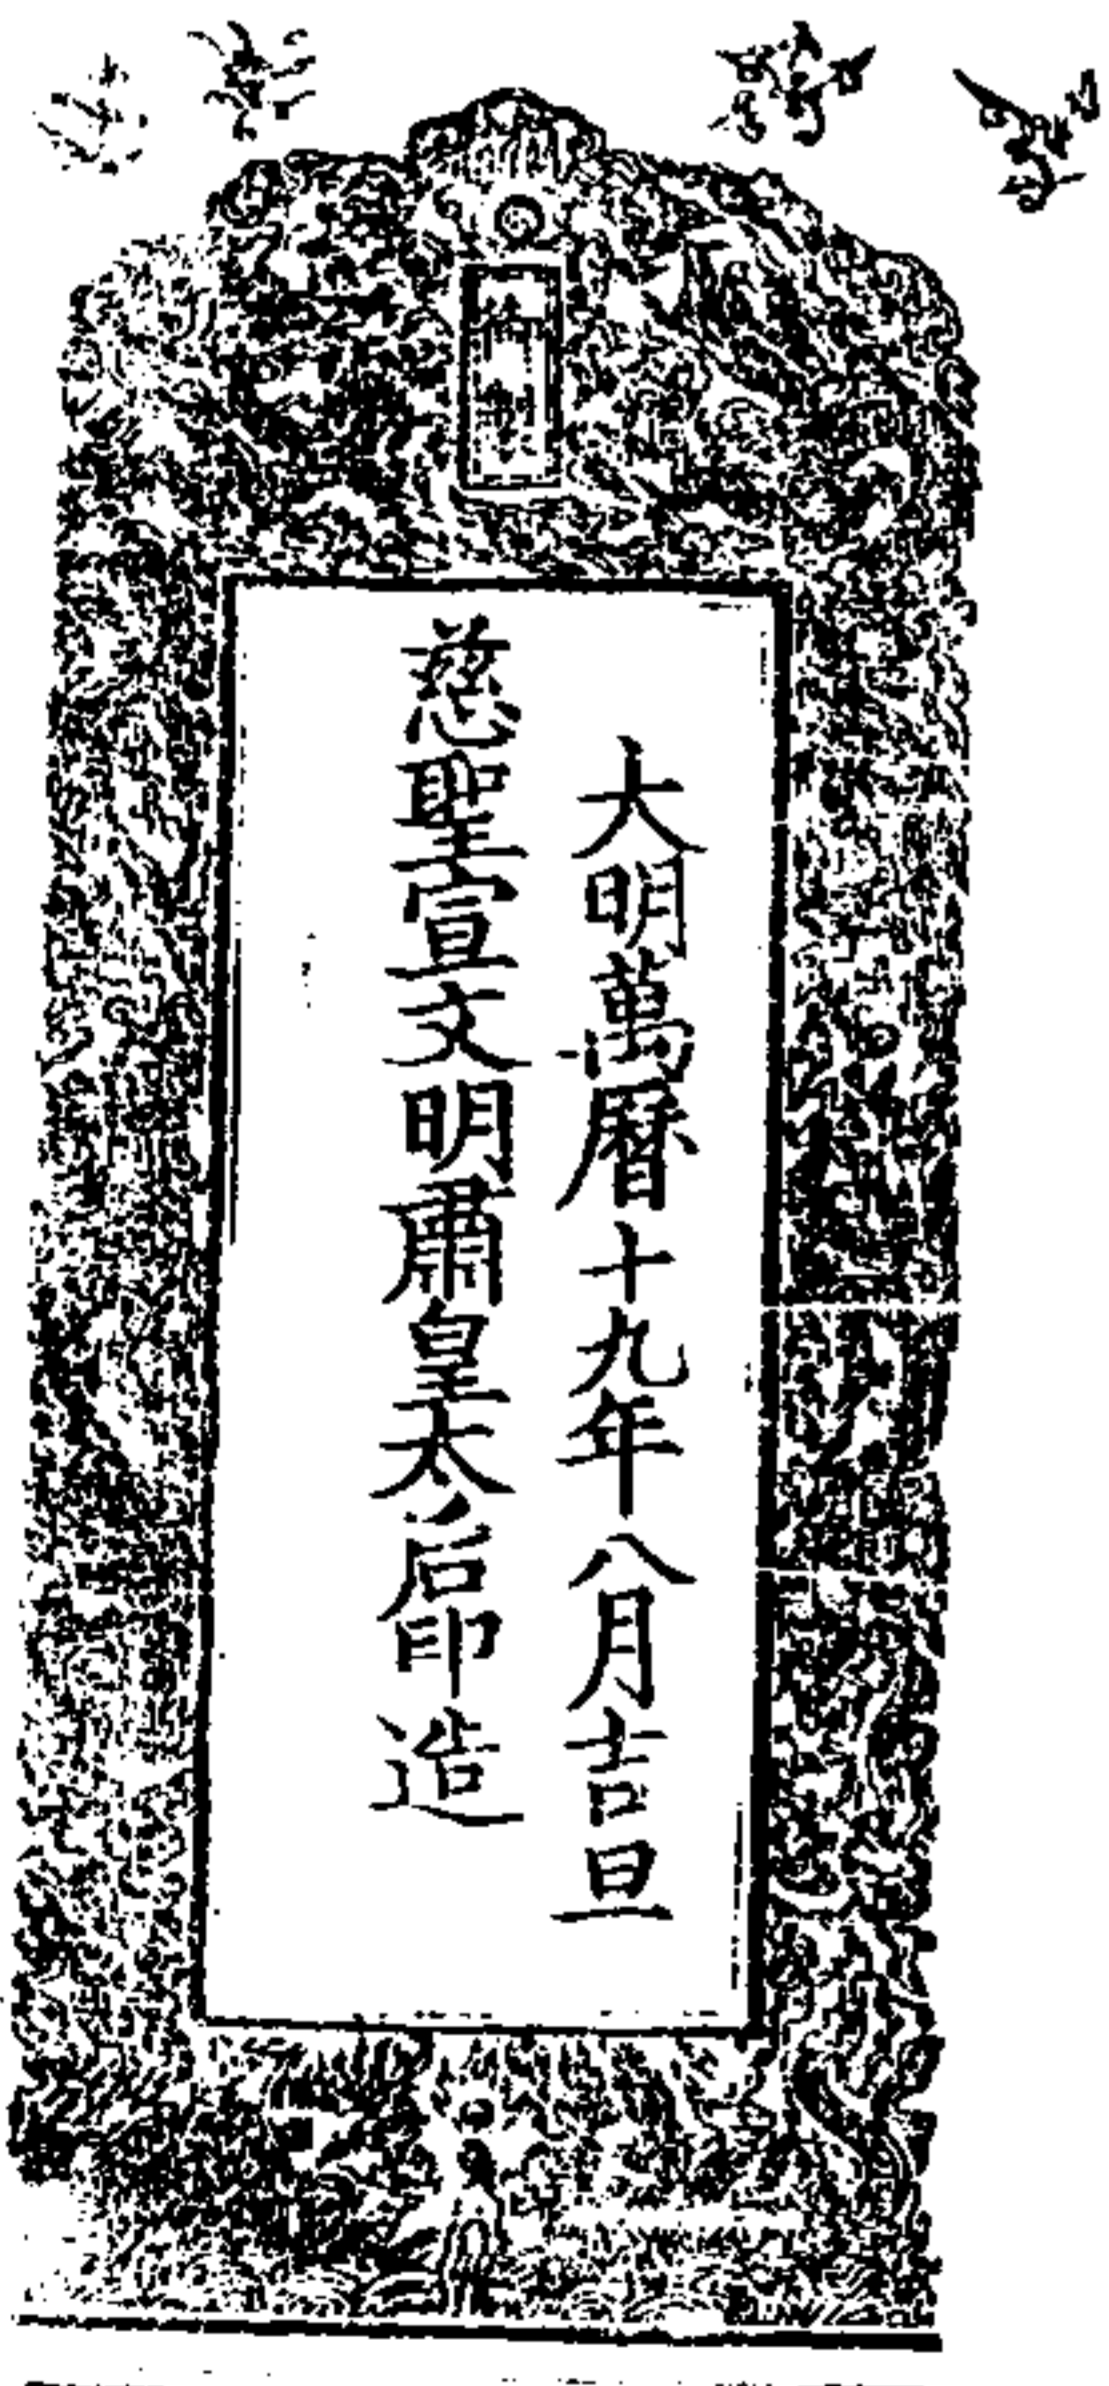 御製
大明萬曆十九年八月吉旦
慈聖宣文明肅皇太后印造